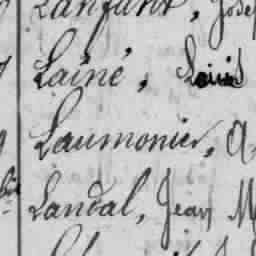 Lanfant, Jose
Lainé, Louis
Laumonier, A
Landal, Jean M